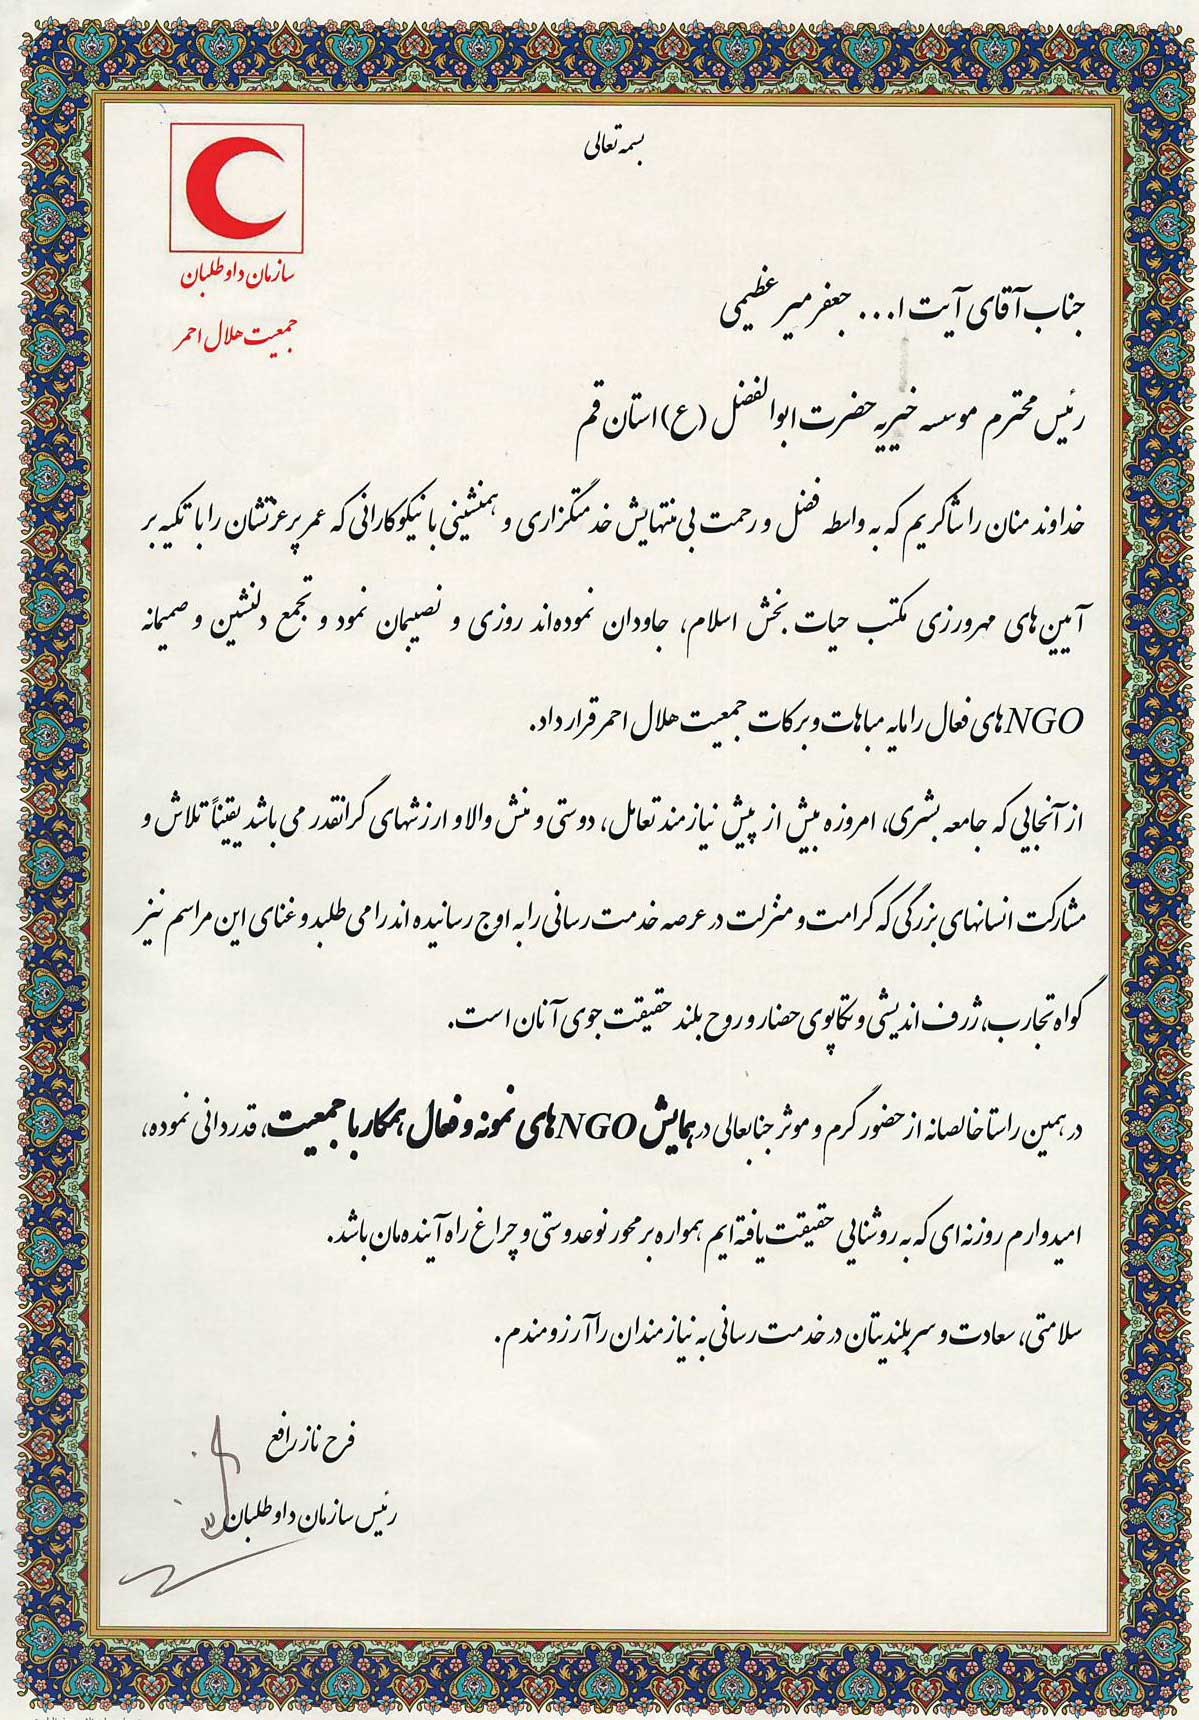 بسمه تعالی
سازمان داوطلبان
جمعیت هلال احمر
جناب آقای آیت ا... جعفر میر عظیمی
رئیس محترم موسسه خیریه حضرت ابوالفضل (ع) استان قم
خداوند منان را شاکریم که به واسطه فضل و رحمت بی منتهایش خدمتگزاری و همنشینی با نیکوکارانی که عمر پرعزتشان را با تکیه بر
آیین های مهرورزی مکتب حیات بخش اسلام، جاودان نموده‌اند روزی و نصیبمان نمود و تجمع دلنشین و صمیمانه
NGOهای فعال را مایه مباهات و برکات جمعیت هلال احمر قرار داد.
از آنجایی که جامعه بشری، امروزه بیش از پیش نیازمند تعامل، دوستی و منش والا و ارزشهای گرانقدر می باشد یقیناً تلاش و
مشارکت انسانهای بزرگی که کرامت و منزلت در عرصه خدمت رسانی را به اوج رسانیده اند را می طلبد و غنای این مراسم نیز
گواه تجارب، ژرف اندیشی و تکاپوی حضار و روح بلند حقیقت جوی آنان است.
در همین راستا خالصانه از حضور گرم و موثر جنابعالی در همایش NGOهای نمونه و فعال همکار با جمعیت، قدردانی نموده،
امیدوارم روزنه ای که به روشنایی حقیقت یافته ایم همواره بر محور نوعدوستی و چراغ راه آینده‌مان باشد.
سلامتی، سعادت و سربلندیتان در خدمت رسانی به نیازمندان را آرزومندم.
فرح ناز رافع
رئیس سازمان داوطلبان